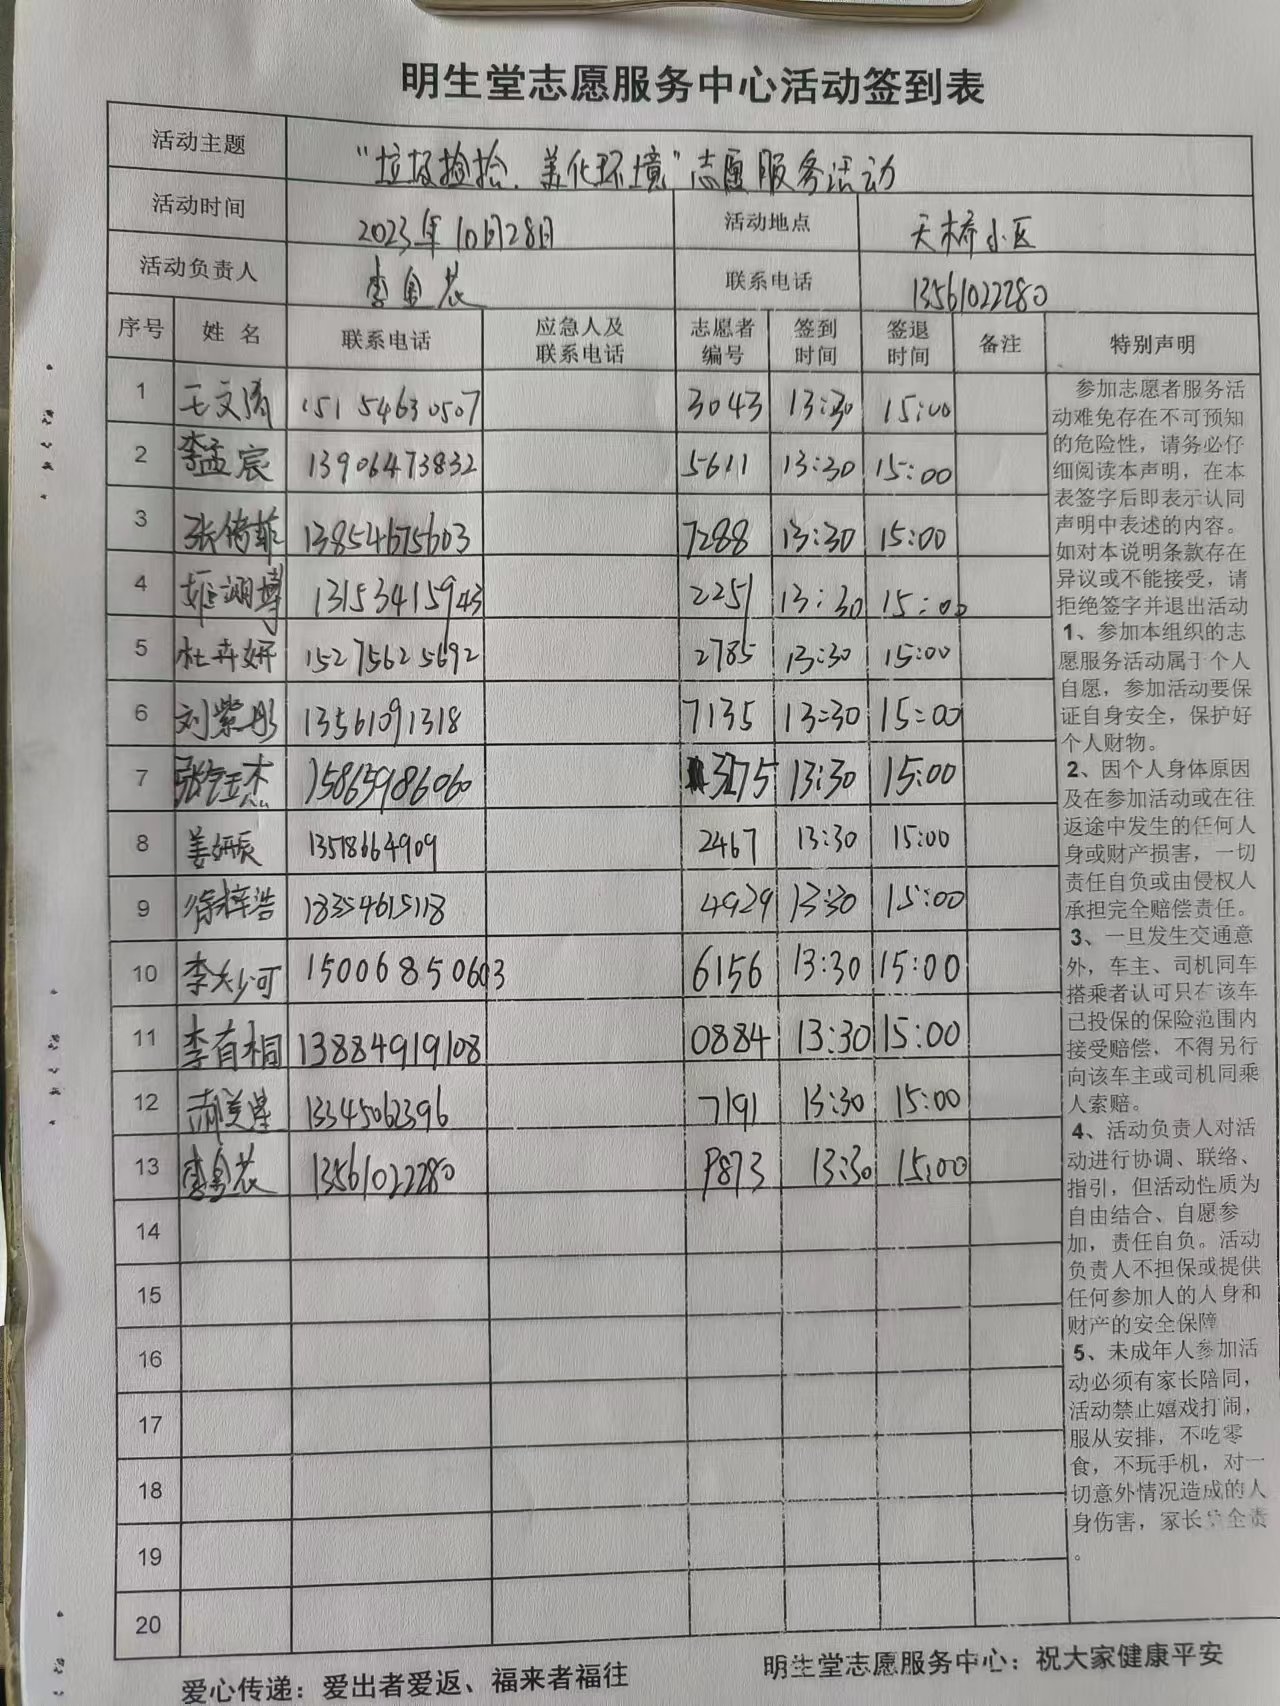 明生堂志愿服务中心活动签到表
活动主题 “垃圾捡拾、美化环境”志愿服务活动
活动时间 2023年10月28日 活动地点 天桥小区
活动负责人 李金花 联系电话 13561022280
序号 姓名 联系电话 应急人及联系电话 志愿者编号 签到时间 签退时间 备注 特别声明
1 王文涵 15154630507 3043 13:30 15:00
2 李孟宸 13906473832 5611 13:30 15:00
3 张倩菲 13854675603 7288 13:30 15:00
4 姬翊博 13153415943 2251 13:30 15:00
5 杜卉妍 15275625692 2785 13:30 15:00
6 刘紫彤 13561091318 7135 13:30 15:00
7 张钰杰 15863986060 3275 13:30 15:00
8 姜妍辰 13518664909 2467 13:30 15:00
9 徐梓浩 18354615118 4929 13:30 15:00
10 李 可 15006850603 6156 13:30 15:00
11 李有桐 13884919108 0884 13:30 15:00
12 郝 13345062396 7191 13:30 15:00
13 李金花 13561022280 9873 13:30 15:00
14
15
16
17
18
19
20
参加志愿者服务活
动难免存在不可预知
的危险性，请务必仔
细阅读本声明，在本
表签字后即表示认同
声明中表述的内容。
如对本说明条款存在
异议或不能接受，请
拒绝签字并退出活动
1、参加本组织的志
愿服务活动属于个人
自愿，参加活动要保
证自身安全，保护好
个人财物。
2、因个人身体原因
及在参加活动或在往
返途中发生的任何人
身或财产损害，一切
责任自负或由侵权人
承担完全赔偿责任。
3、一旦发生交通意
外，车主、司机同车
搭乘者认可只在该车
已投保的保险范围内
接受赔偿，不得另行
向该车主或司机同乘
人索赔。
4、活动负责人对活
动进行协调、联络、
指引，但活动性质为
自由结合、自愿参
加，责任自负。活动
负责人不担保或提供
任何参加人的人身和
财产的安全保障
5、未成年人参加活
动必须有家长陪同，
活动禁止嬉戏打闹，
服从安排，不吃零
食，不玩手机，对一
切意外情况造成的人
身伤害，家长负全责
。
爱心传递：爱出者爱返、福来者福往 明生堂志愿服务中心：祝大家健康平安